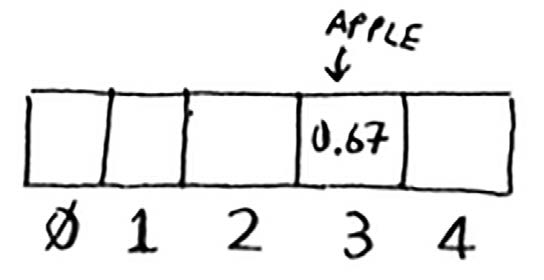 APPLE
0.67
0 1 2 3 4